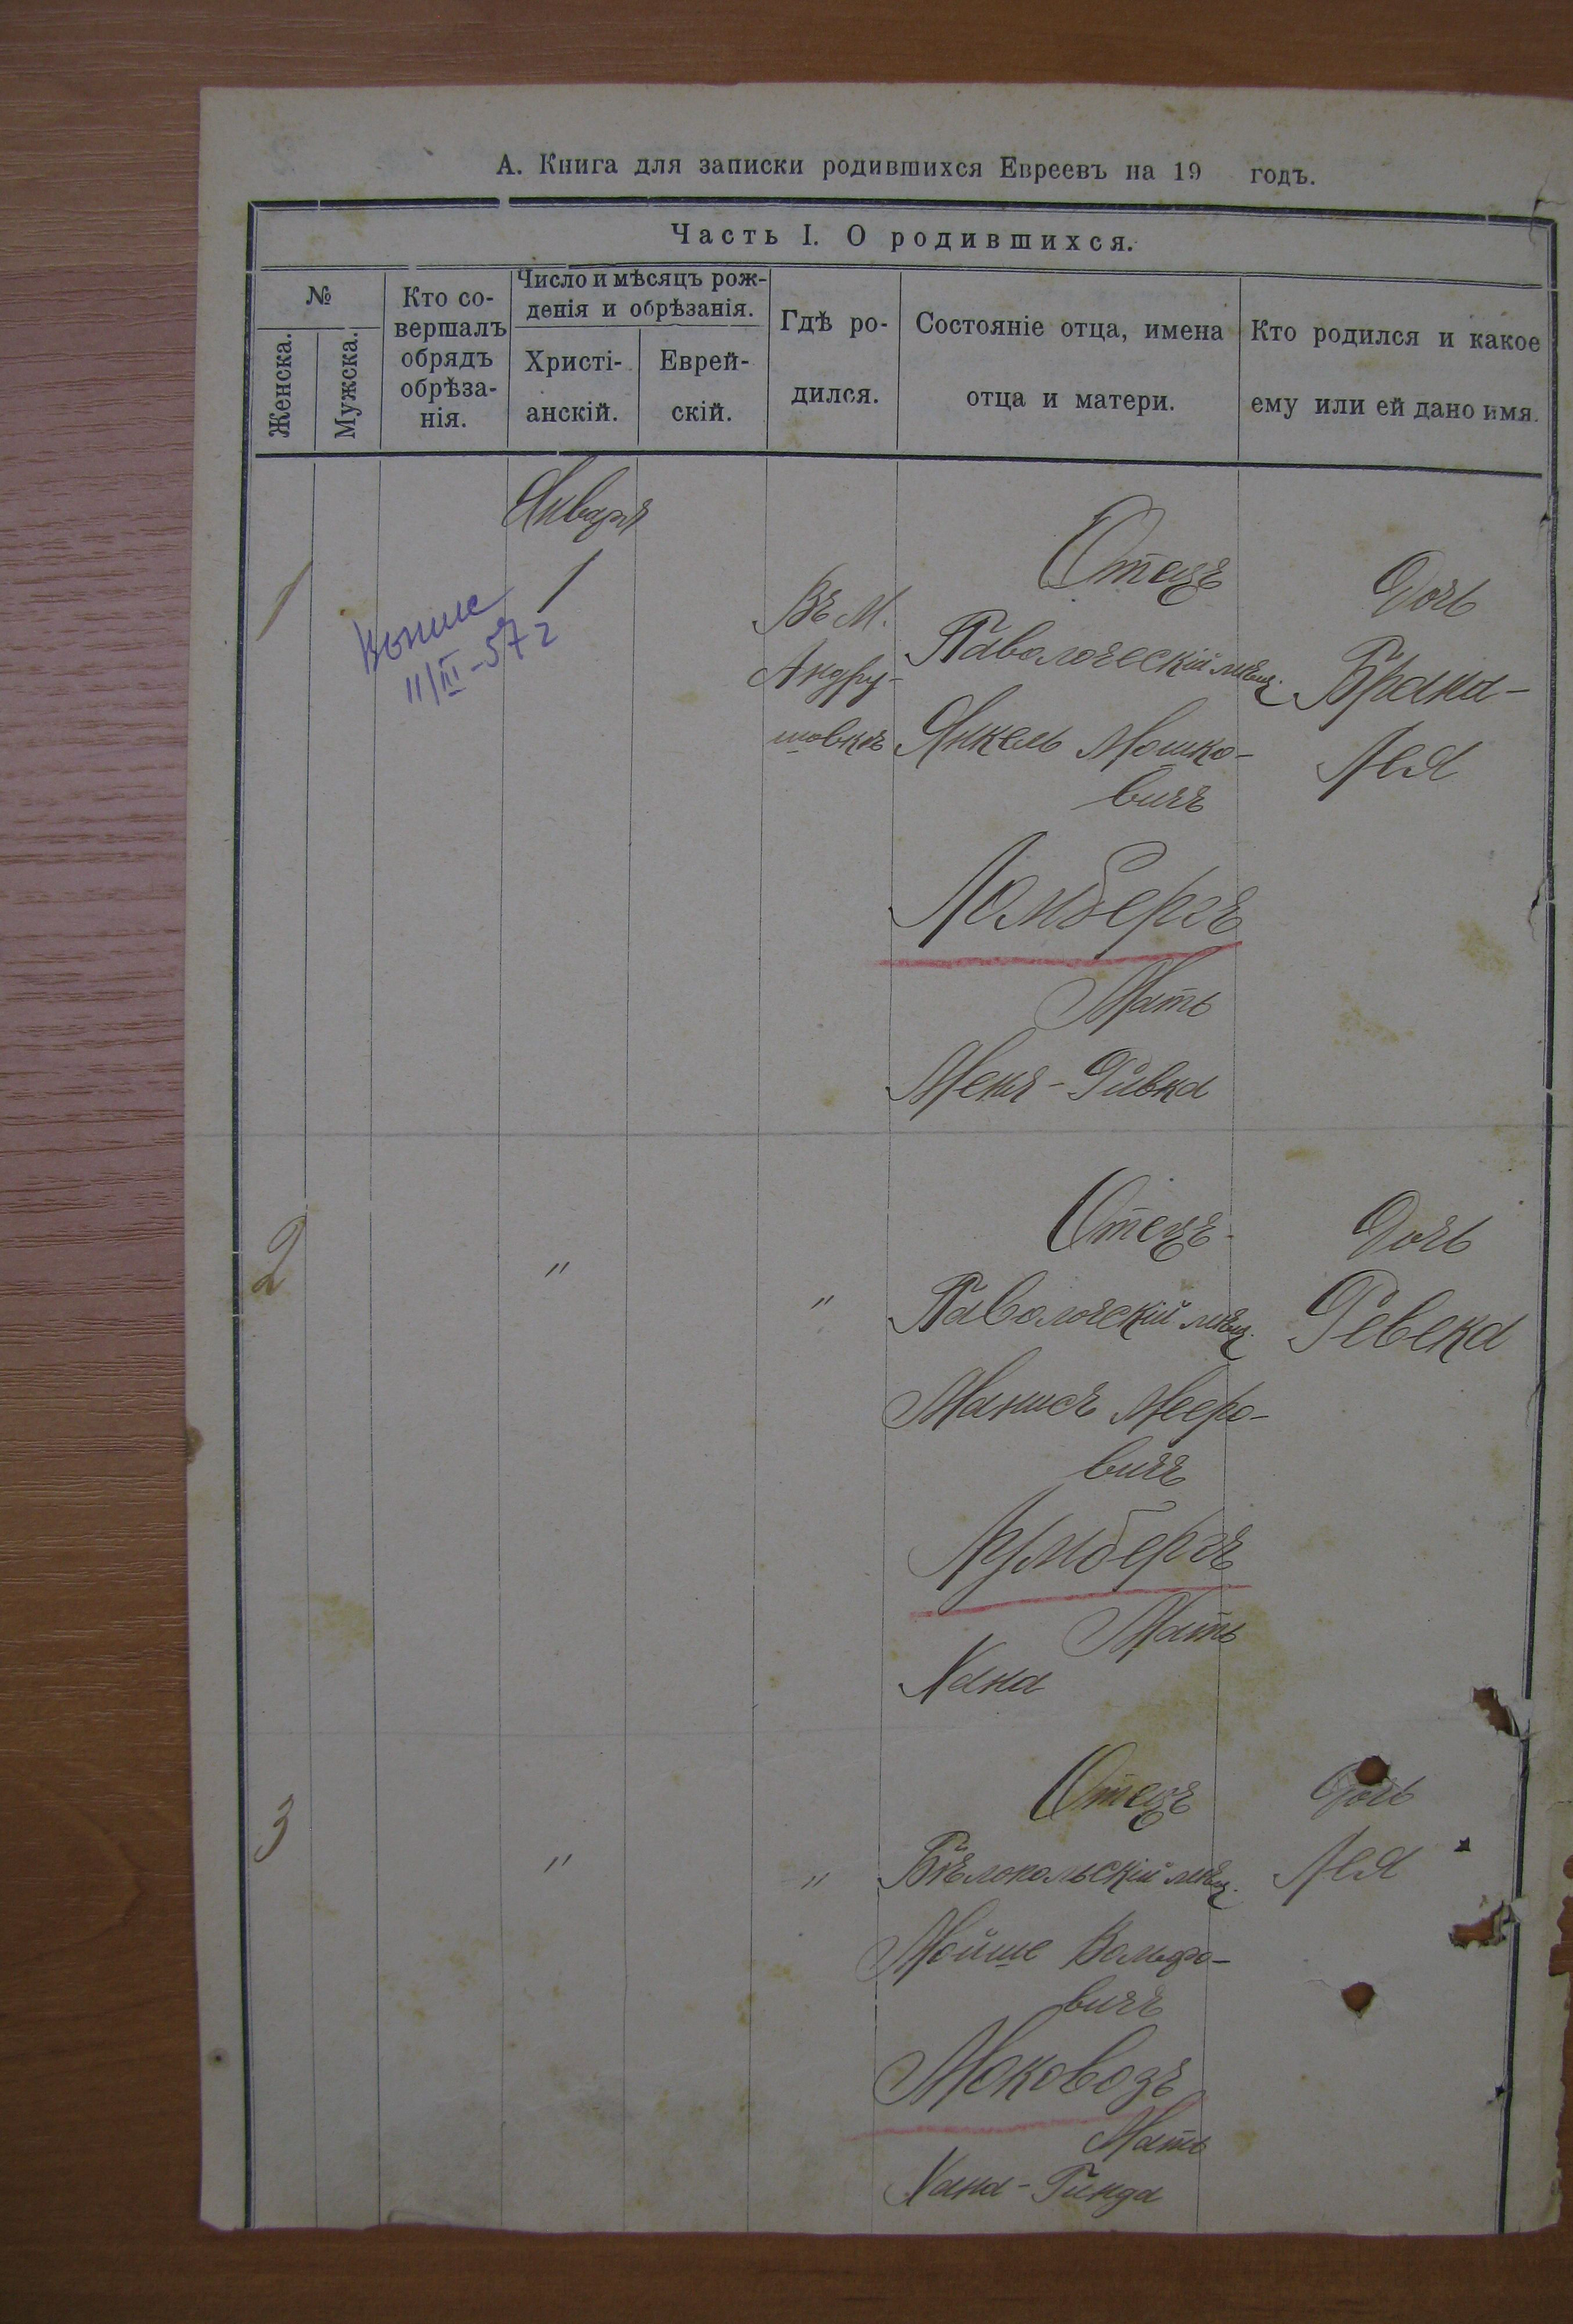 А. Книга для записки родившихся Евреевъ на 19 годъ.
Часть I. О родившихся.
№
Женска.
Мужска.
Кто со-
вершалъ
обрядъ
обрѣза-
нія.
Число и мѣсяцъ рож-
денія и обрѣзанія.
Христі-
анскій.
Еврей-
скій.
Гдѣ ро-
дился.
Состояніе отца, имена
отца и матери.
Кто родился и какое
ему или ей дано имя.
Января
1
11/III-57 г
1
Въ М.
Андру-
шовкѣ
Отецъ
Паволоческій мѣщ.
Янкель Мошко-
вичъ
Ломбергъ
Мать
Меня-Ривка
Дочь
Брана-
Лея
2
"
"
Отецъ
Паволочскій мѣщ.
Манисъ Мееро-
вичъ
Лумбергъ
Мать
Хана
Дочь
Ревека
3
"
"
Отецъ
Бѣлопольскій мѣщ.
Мойше Вольфо-
вичъ
Моковозъ
Мать
Хана-Гинда
Дочь
Лея